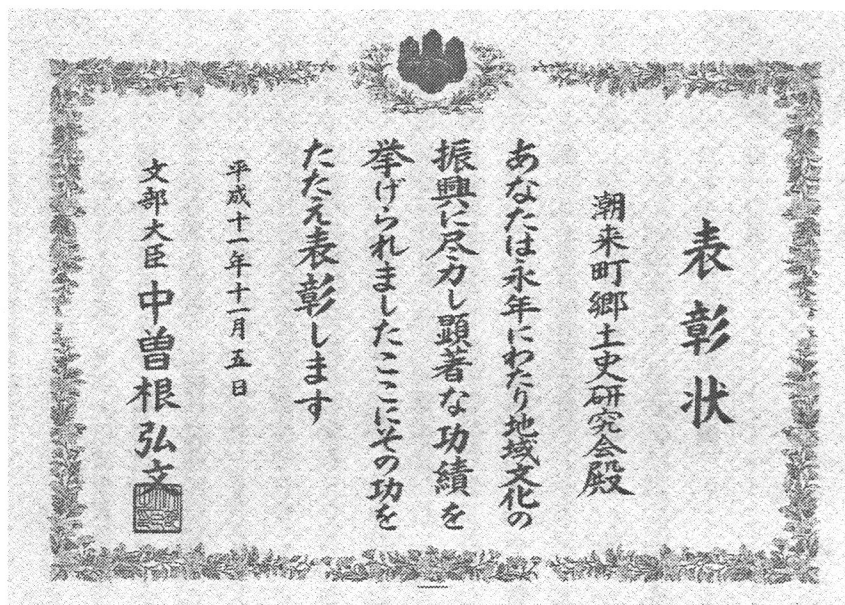 表彰状
潮来町郷土史研究会殿
あなたは永年にわたり地域文化の
振興に尽力し顕著な功績を
挙げられましたここにその功を
たたえ表彰します
平成十一年十一月五日
文部大臣 中曽根弘文